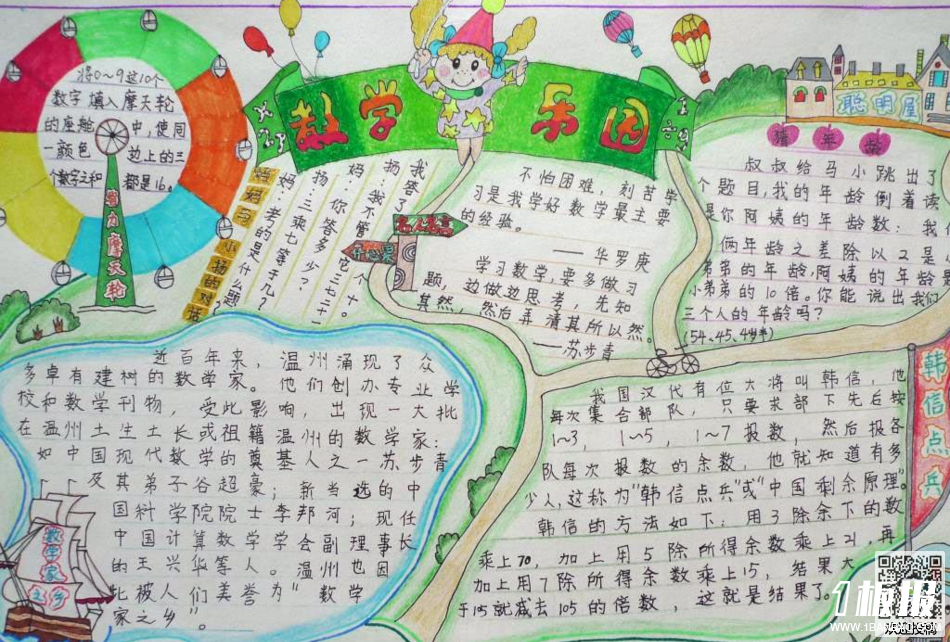 数学乐园
将0～9这10个
数字填入摩天轮
的座舱中,使同
一颜色边上的三
个数字之和都是16。
智力摩天轮
妈妈与小扬的对话
妈:老考的是什么题?
扬:三乘七等于几?
妈:你答多少?
扬:我不管它三七二十一
我答了
个十。
名人名言
开心果
不怕困难,刻苦学
习是我学好数学最主要
的经验。
——华罗庚
学习数学,要多做习
题,边做边思考,先知
其然,然后弄清其所以然。
——苏步青
聪明屋
猜年龄
叔叔给马小跳出了
个题目,我的年龄倒着读
是你阿姨的年龄数:我们
俩年龄之差除以2是小
弟弟的年龄,阿姨的年龄
小弟弟的10倍。你能说出我们
三个人的年龄吗?
近百年来,温州涌现了众
多卓有建树的数学家。他们创办专业学
校和数学刊物,受此影响,出现一大批
在温州土生土长或祖籍温州的数学家:
如中国现代数学的奠基人之一苏步青
及其弟子谷超豪;新当选的中
国科学院院士李邦河;现任
中国计算数学学会副理事长
的王兴华等人。温州也因
此被人们美誉为"数学
家之乡"。
数学家之乡
韩信点兵
我国汉代有位大将叫韩信,他
每次集合部队,只要求部下先后按
1~3, 1~5, 1~7报数,然后报各
队每次报数的余数,他就知道有多
少人,这称为"韩信点兵"或"中国剩余原理。"
韩信的方法如下:用3除余下的数
乘上70,加上用5除所得余数乘上21,再
加上用7除所得余数乘上15,结果大
于105就减去105的倍数,这就是结果了。
1板报